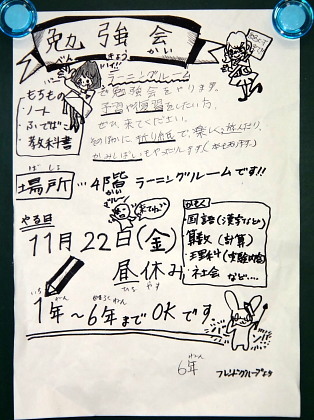 勉強会
べん きょう かい
ハイ!!
ラーニングルーム
を勉強会をやります。
予習や復習をしたい方、
ぜひ、来てください。
そのほかに、折り紙で、楽しく遊んだり、
かみしばいもやったりします。(本もあります。)
・もちもの
・ノート
・ふでばこ
・教科書
ばしょ
場所…4階 ラーニングルームです!!
かい
やる日
11月22日(金)
昼休み
ひる やす
来てね♡
かもく
国語(漢字など)
算数(計算)
理科(実験の復習)
社会 など….
いち ねん ろくねん
1年~6年までOKです
ねん
6年 フレンドグループより